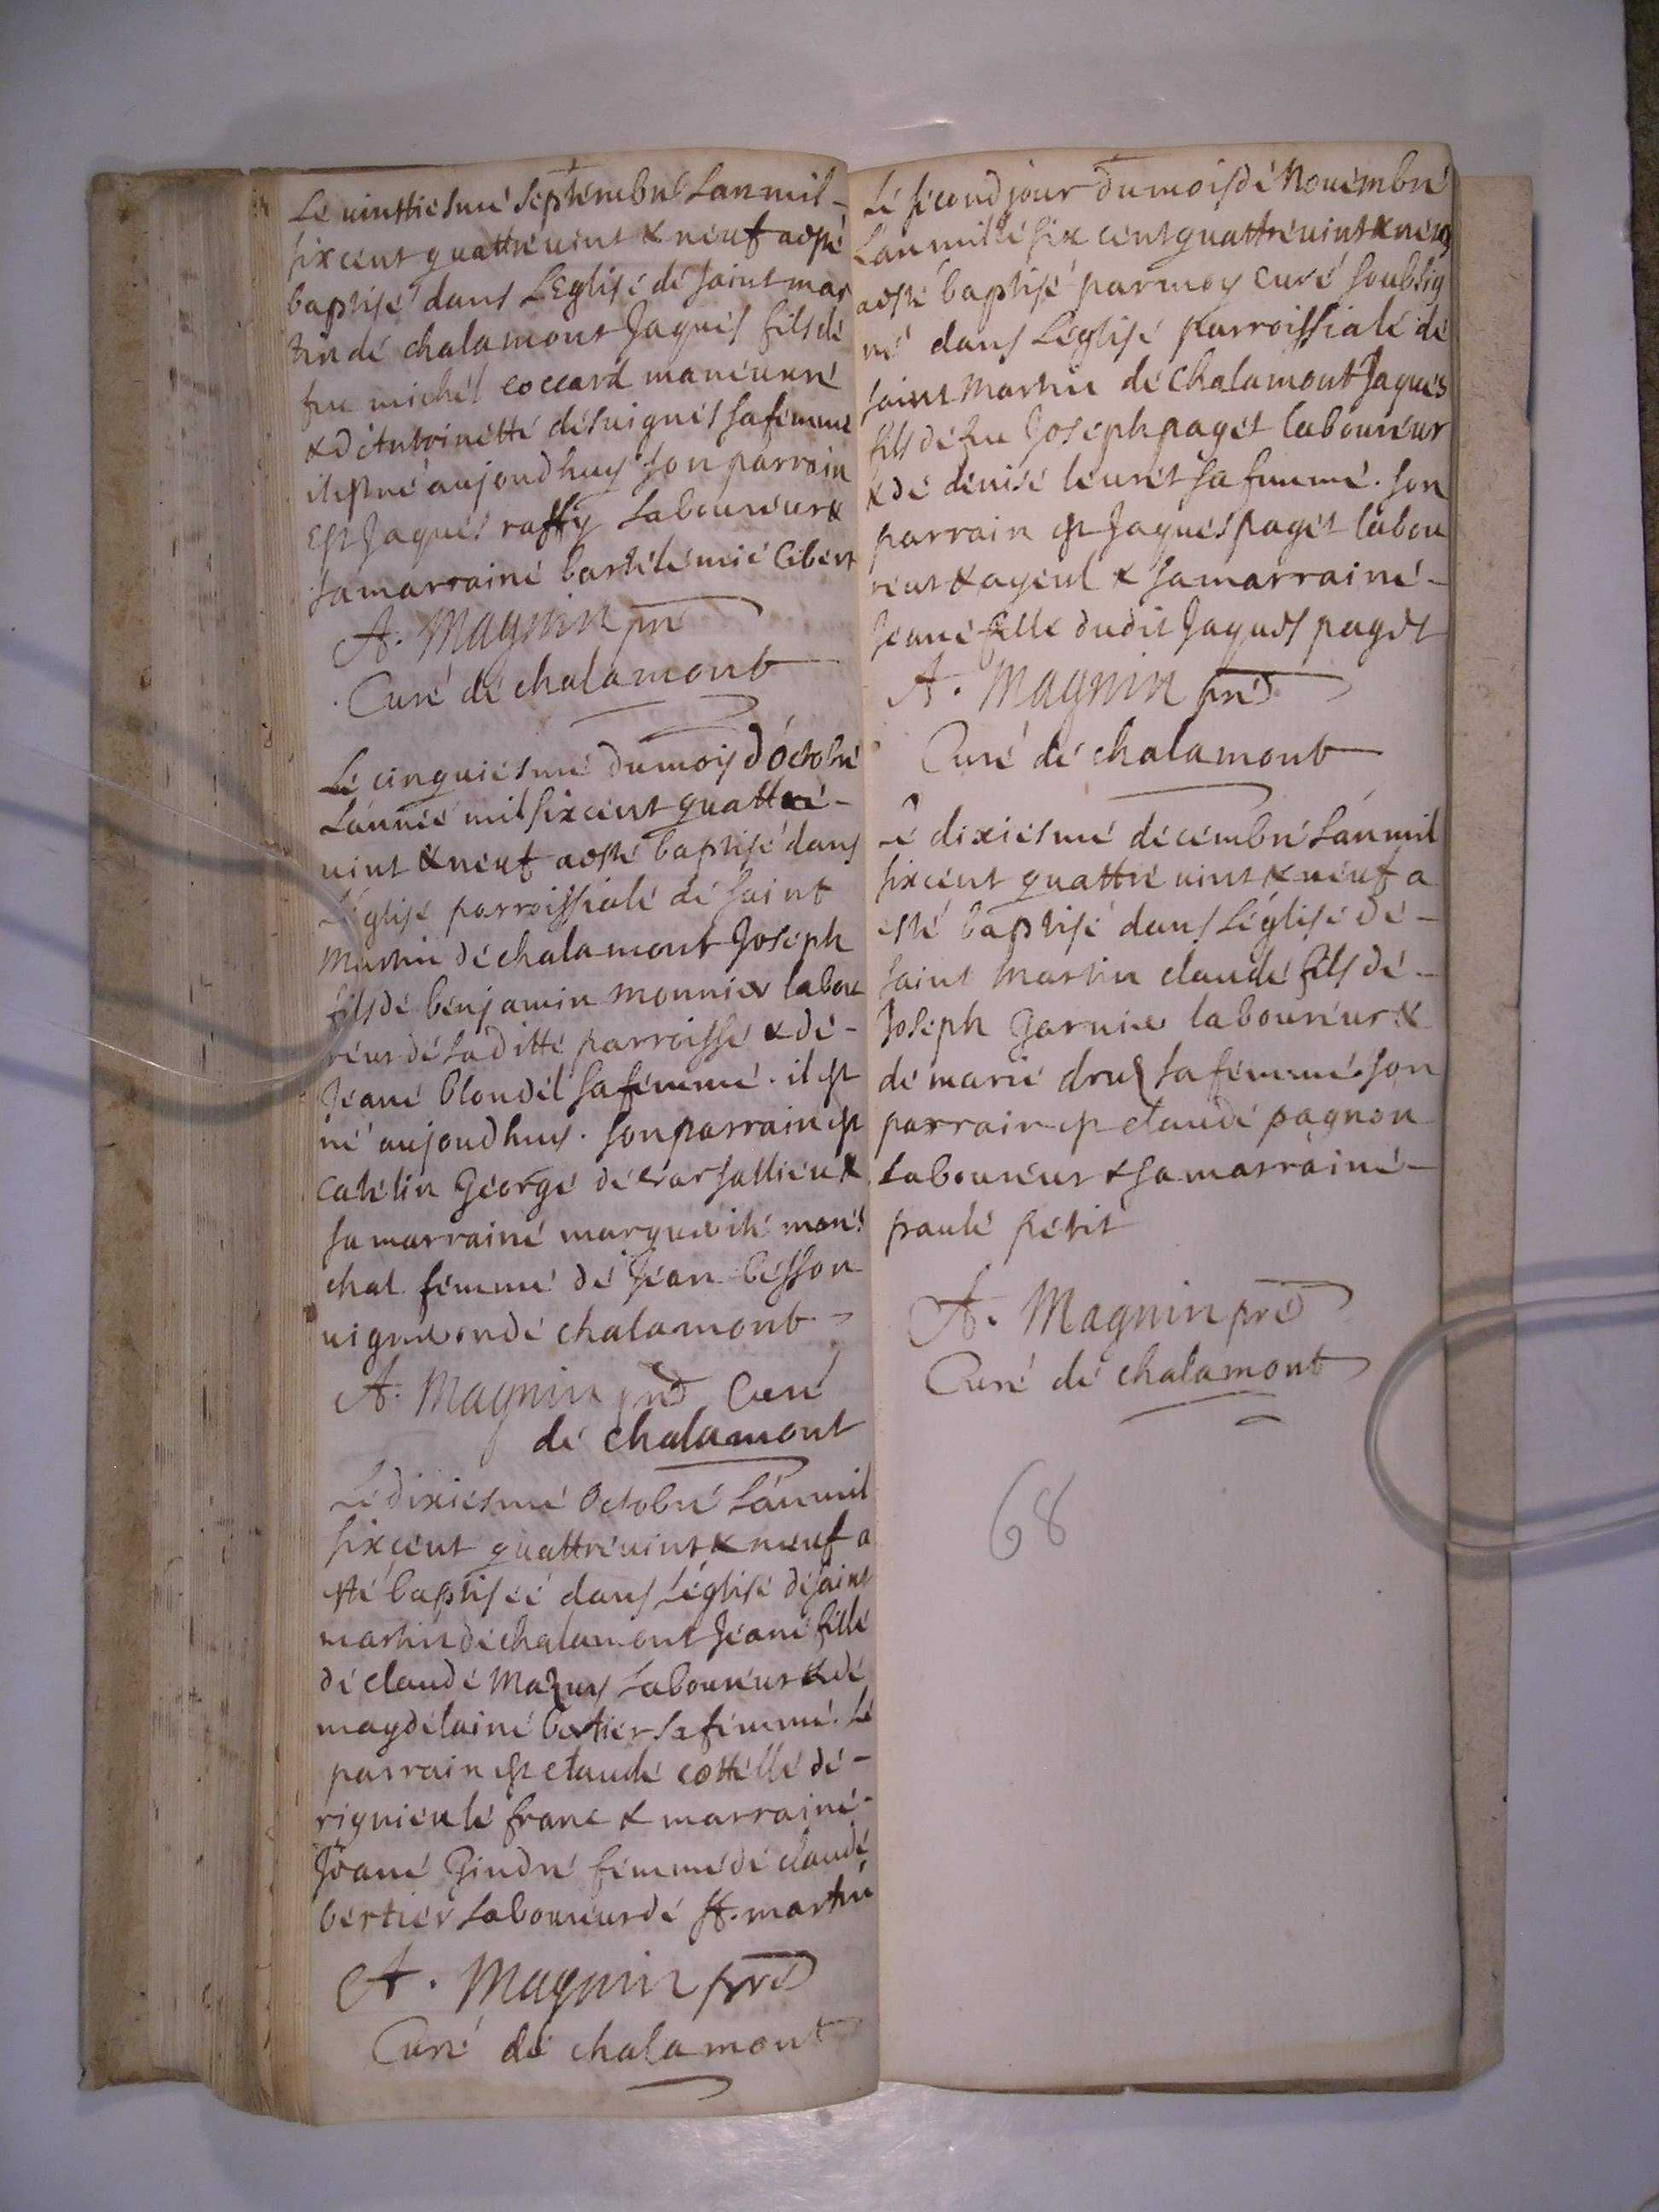 Le vinttiesme septembre Lan mil -
six cent quattre vint & neuf a esté
baptisé dans L'Eglise de saint mar
tin de chalamont Jaques fils de
feu michel coccard maneuvre
& d'Antoinette desvignes sa femme
il est né aujoudhuy son parrain
Est Jaques raffy Laboureur &
sa marraine bartelemie libert
A. Magnin pre
Curé de chalamont
Le cinquiesme du mois d'octobre
L'année mil six cent quattre -
vint & neuf a esté baptisé dans
L'église parroissiale de saint
Martin de chalamont Joseph
fils de benjamin monnier labou
reur de La ditte parroisse & de -
Jeane blondel sa femme . il est
né aujoudhuy . son parrain est
Catelin George de
sa marraine marguerite
chal femme de Jean besson
vigneron de chalamont
A. Magnin pre Curé
de chalamont
Le dixiesme octobre L'an mil
six cent quattre vint & neuf a
esté baptisée dans L'église de saint
martin de chalamont Jeane fille
de claude Mazuy Laboureur & de
magdelaine bertier sa femme. Le
parrain est claude cottelle de -
rignieu le franc & marraine -
Jeane Gindre femme de claude
bertier Laboureur de st. martin
A. Magnin pre
Curé de chalamont
Le second jour du mois de Novembre
L'an mille six cent quattre vint & neuf
a esté baptisé par moy curé soubsig
né dans L'église parroissiale de
saint Martin de Chalamont Jaques
fils de feu Joseph paget laboureur
& de denise leuret sa femme . son
parrain est Jaques paget labou
reur & ayeul & sa marraine -
Jeane fille dudit Jaques paget
A. Magnin pre
Curé de chalamont
Le dixiesme decembre L'an mil
six cent quattre vint & neuf a
esté baptisé dans L'église de -
saint Martin claude fils de -
Joseph Garnier laboureur &
de marie druz sa femme son
parrain est claude pagnon
Laboureur & sa marraine -
paule petit
A. Magnin pre
Curé de chalamont
68